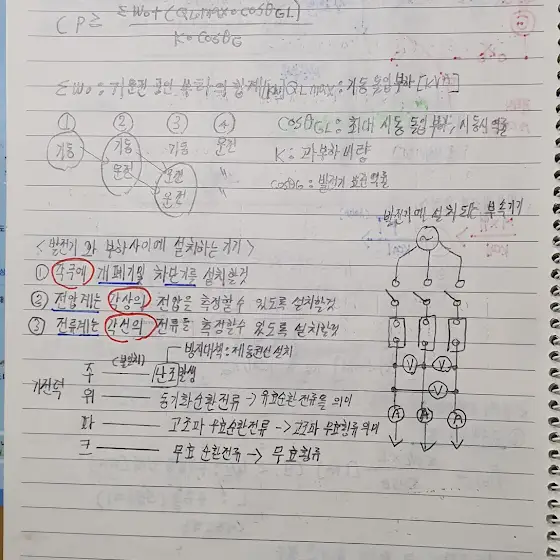 CP ≥ ΣWo + (QLmax × cosθGL) / K × cosθG
ΣWo : 기운전 중인 부하의 합계[kW] QLmax : 기동 돌입부하 [kVA]
① ② ③ ④
기동 기동 기동 운전
운전 운전 〃
운전 〃
cosθGL : 최대 시동 돌입부하, 시동시 역률
K : 과부하 내량
cosθG : 발전기 역률
발전기에 설치되는 부속기기
<발전기와 부하사이에 설치하는 기기>
① 각극에 개폐기및 차단기를 설치할것
② 전압계는 각상의 전압을 측정할수 있도록 설치할것
③ 전류계는 각선의 전류를 측정할수 있도록 설치할것
(불일치) 방지대책 : 제동권선 설치
기전력 주 난조발생
위 동기화순환전류 → 유효순환전류를 의미
파 고조파 무효순환전류 → 고조파 무효횡류 의미
크 무효 순환전류 → 무효횡류
~
V
V
A A A